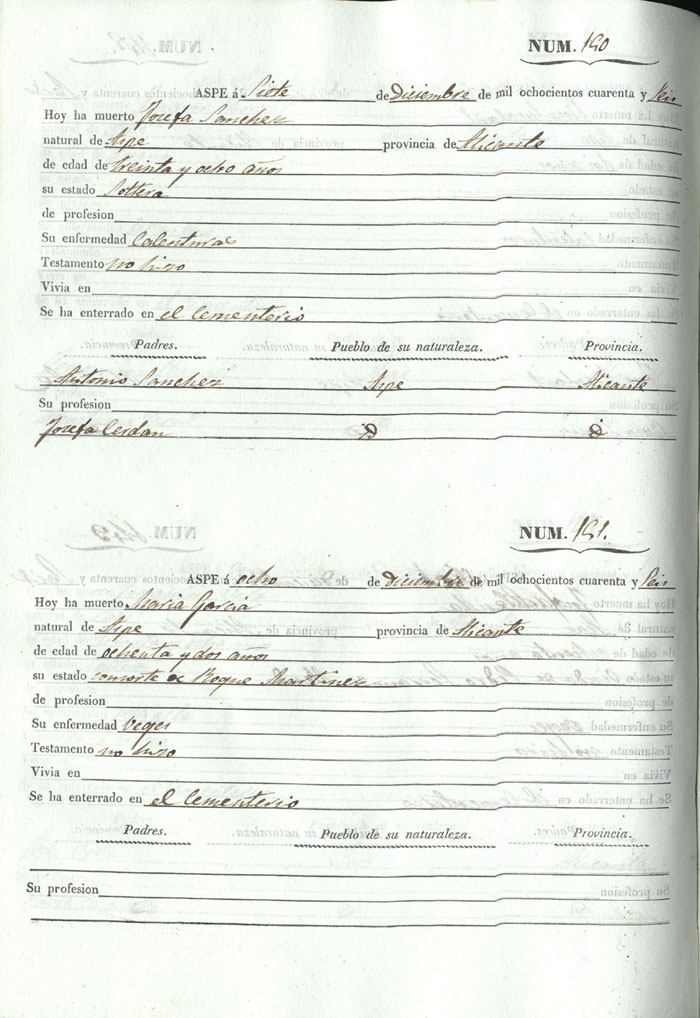 NUM. 150
ASPE á Siete de Diciembre de mil ochocientos cuarenta y Seis
Hoy ha muerto Josefa Sanchez
natural de Aspe provincia de Alicante
de edad de treinta y ocho años
su estado Soltera
de profesion
Su enfermedad Calenturas
Testamento no hizo
Vivia en
Se ha enterrado en el Cementerio
Padres. Pueblo de su naturaleza. Provincia.
Antonio Sanchez Aspe Alicante
Su profesion
Josefa Cerdan
NUM. 151.
ASPE á ocho de Diciembre de mil ochocientos cuarenta y Seis
Hoy ha muerto Maria Garcia
natural de Aspe provincia de Alicante
de edad de ochenta y dos años
su estado consorte de Roque Martinez
de profesion
Su enfermedad Veges
Testamento no hizo
Vivia en
Se ha enterrado en el Cementerio
Padres. Pueblo de su naturaleza. Provincia.
Su profesion